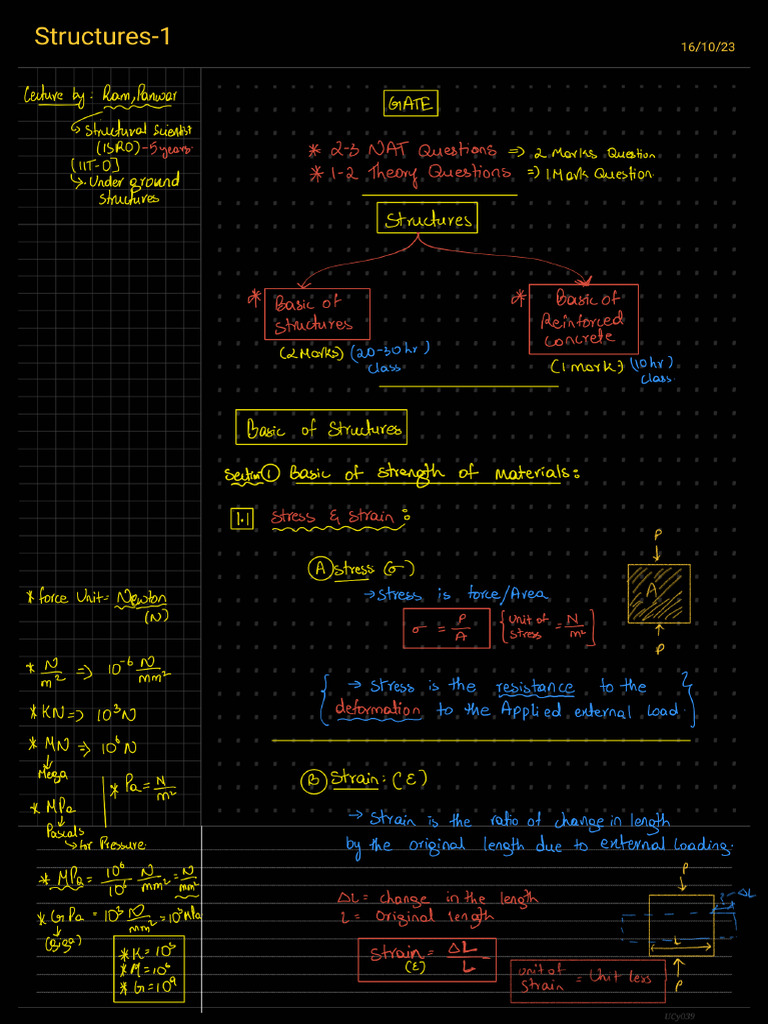 Structures-1
16/10/23
Lecture by: Ram Panwar
↳ Structural Scientist
(ISRO) -5 years
[IIT-D]
↳ Under ground
structures
GATE
* 2-3 NAT Questions => 2 Marks Question
* 1-2 Theory Questions => 1 Mark Question.
Structures
* Basic of
Structures
(2 Marks) (20-30 hr)
class
* Basic of
Reinforced
Concrete
(1 mark) (10 hr)
class
Basic of Structures
Section ① Basic of strength of materials:
1.1 Stress & Strain:
Ⓐ Stress (σ)
→ Stress is force/Area
σ = P/A {Unit of stress = N/m²}
P
A
P
{ → Stress is the resistance to the
deformation to the Applied external Load. }
* force Unit = Newton
(N)
* N/m² => 10⁻⁶ N/mm²
* KN => 10³N
* MN => 10⁶N
↓
Mega
* Pa = N/m²
* MPa
↓
Pascals
↳ for Pressure
* MPa = 10⁶/10⁶ N/mm² = N/mm²
* GPa = 10³ N/mm² = 10³ MPa
↓
(Giga)
* K = 10³
* M = 10⁶
* G = 10⁹
Ⓑ Strain: (ε)
→ Strain is the ratio of change in length
by the original length due to external loading.
ΔL = change in the length
L = Original length
Strain = ΔL/L
(ε)
unit of strain = Unit less
P
ΔL
L
P
UCy039